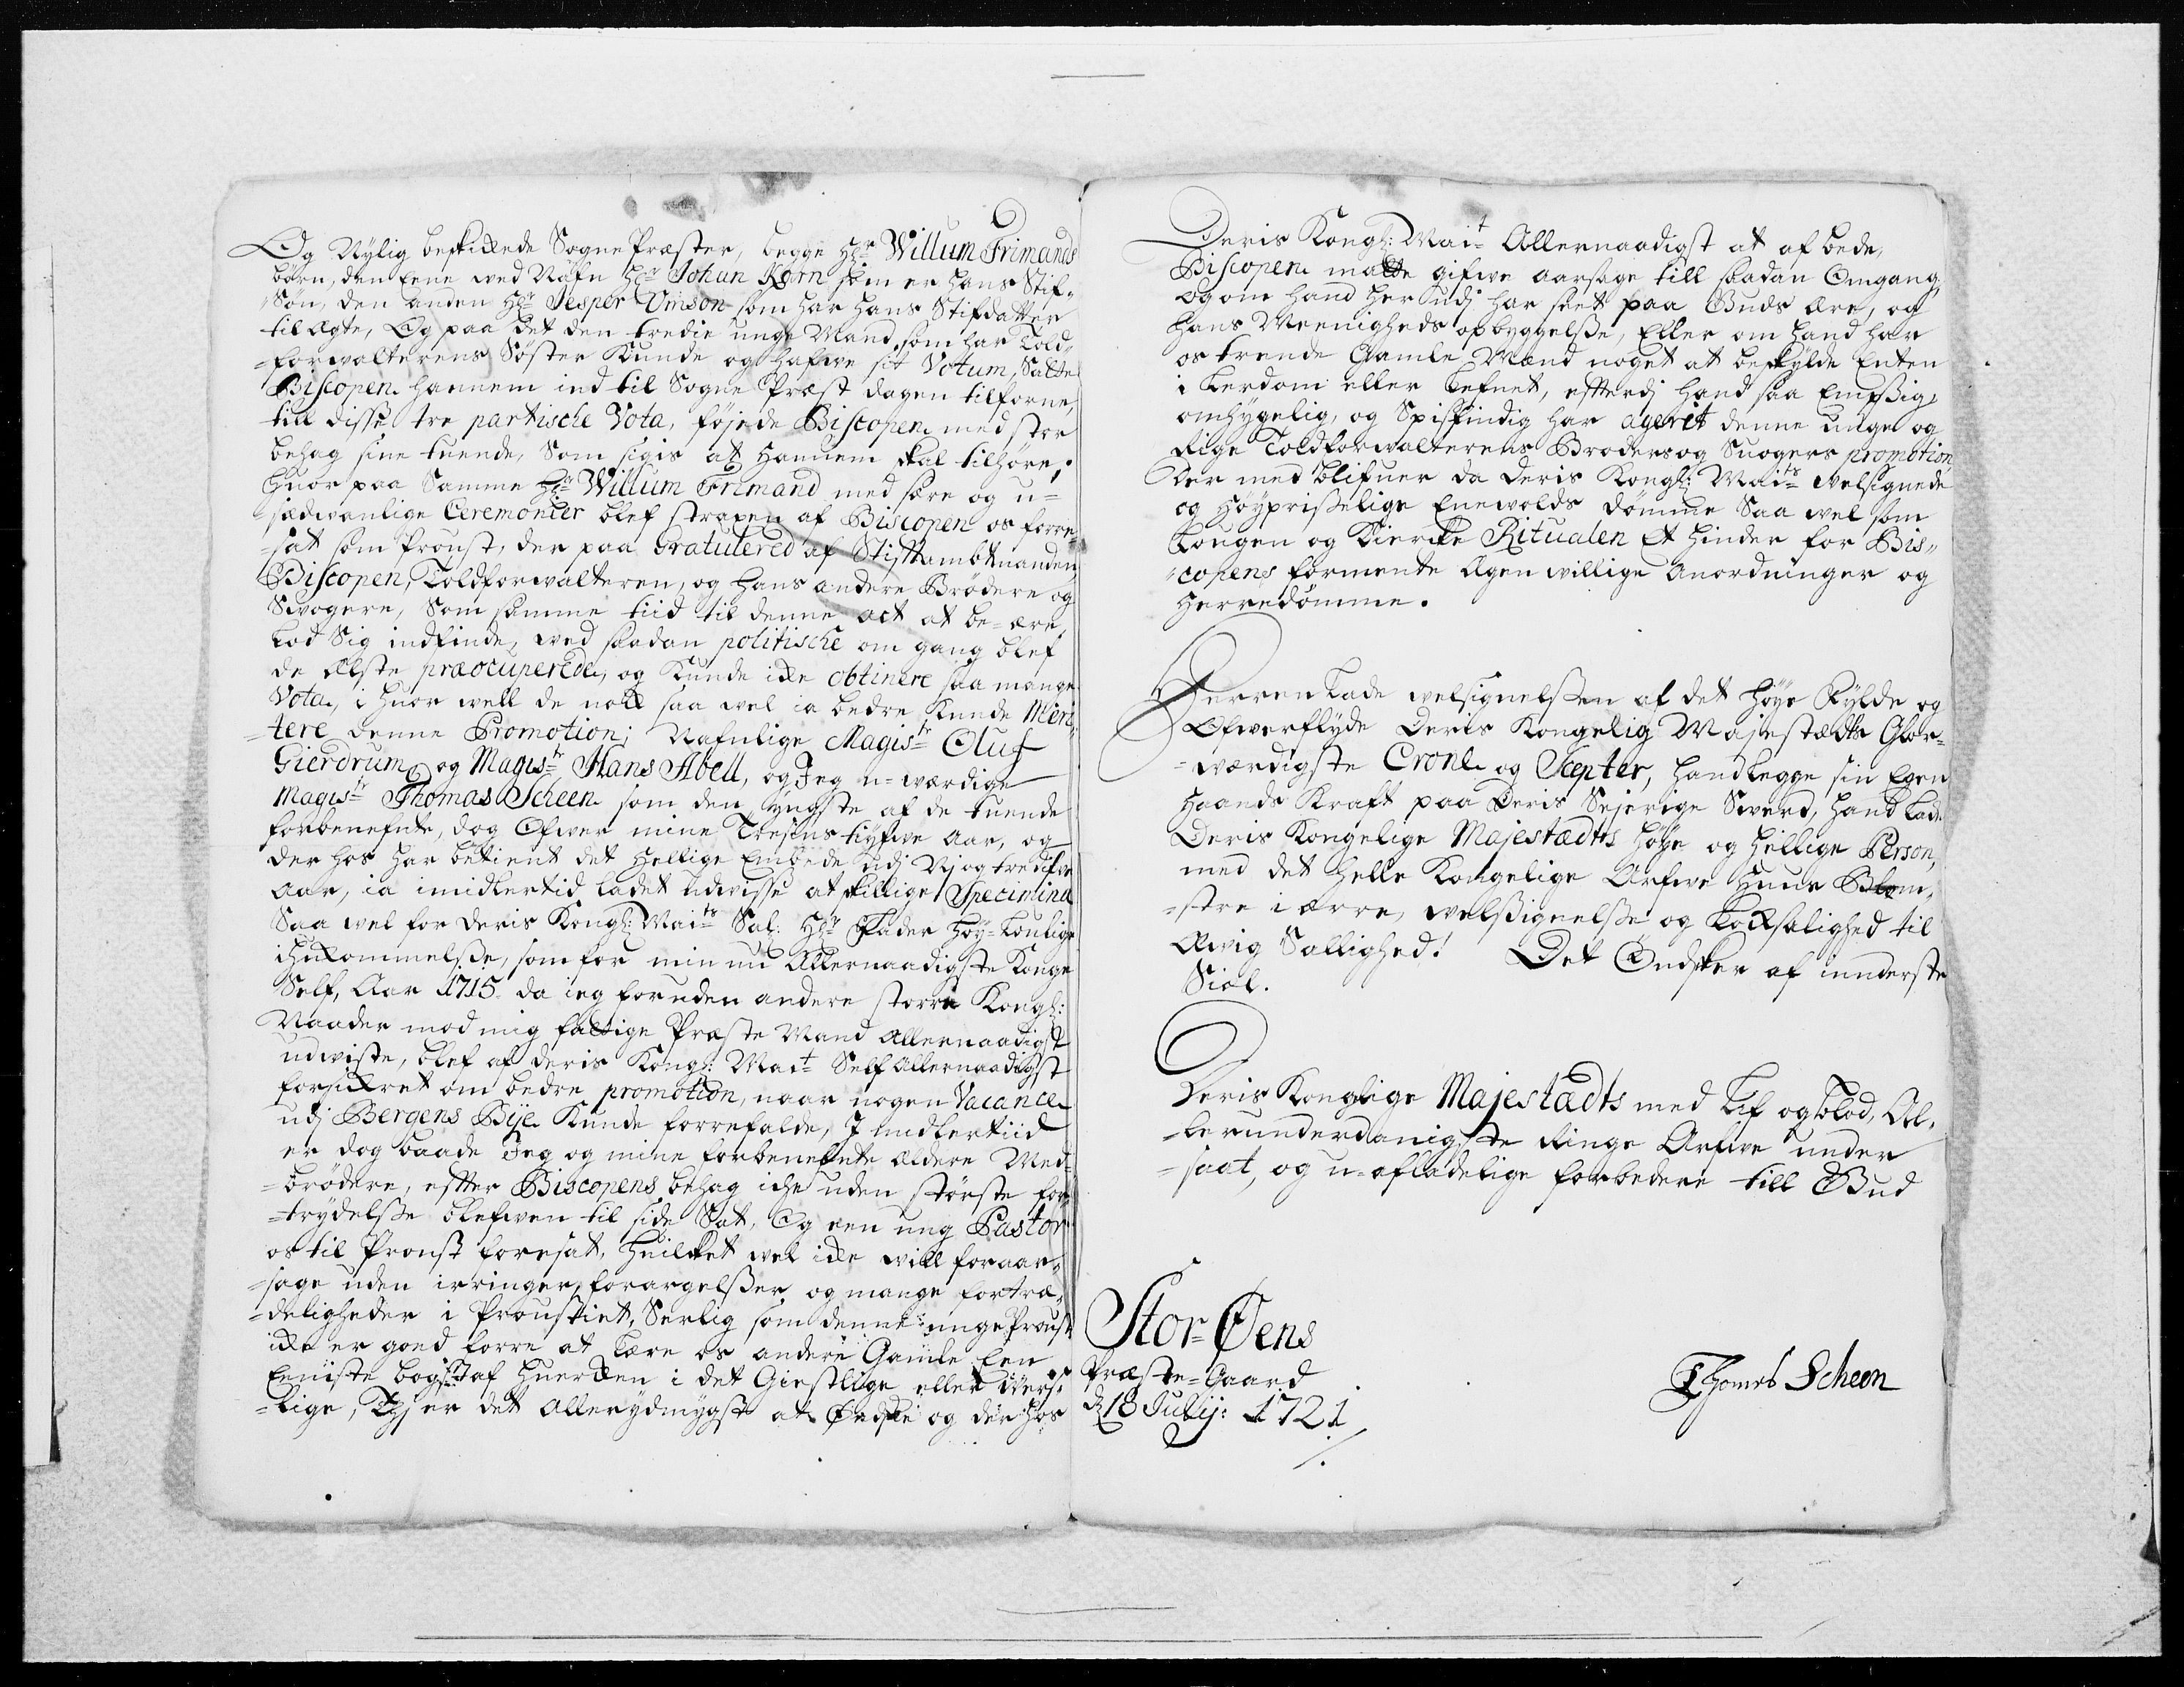 Og Nylig beskikkede Sogne Præster, begge Hr Willum Frimands
børn, den Eene ved Nafn Hr Johan Korn som er hans Stif-
Søn, den anden Hr Jesper Vmson som har hans Stifdatter
til Ægte, Og paa det den tredie unge Mand, som har Told-
-forvalterens Søster Kunde og hafve sit Votum, Satte
Biscopen hannem ind til Sogne Præst dagen tilforne,
till disse tre partische Vota, føjede Biscopen med stor
behag sine tuende, Som sigis at Hannem skal tilhøre,
Huor paa Samme Hr Willum Frimand med store og u-
sædvanlige Ceremonier blef straxen af Biscopen os forre-
-sat som Proust, der paa Gratulered af Stiftambtmanden,
Biscopen, Toldforvalteren, og hans andere Brødere og
Svogere, Som samme tiid til denne act at be-ære,
Lod Sig indfinde, ved saadan politische om gang blef
de Ælste præocuperede, og Kunde icke obtinere saa mange
Vota, i huor vell de nok saa vel ia bedre Kunde Meri-
-tere denne Promotion; Nafnlige Magistr Oluf
Gierdrum, og Magistr Hans Abell, og Jeg u-værdige
Magistr Thomas Scheen som den yngste af de tuende
forbenefnte, dog Ofver mine Tresens tyfve Aar, og
der hos har betient det Hellige Embede udj Nj og tredifve
Aar, ia imidlertid ladet udvisse at skillige Specimina
Saa vel for deris Kongl: Maits Sal: Hr Fader Høy-Loulige
ihukommelsse, som for min nu Allernaadigste Konge
Self, Aar 1715. da ieg foruden andere storre Kongl:
Naader mod mig fattige Præste Mand Allernaadigst
udviste, blef af deris Kongl: Mait Self Allernaadigst
forsikkret om bedre promotion, naar nogen Vacance
udj Bergens Bije Kunde forrefalde, Imidlertiid
er dog baade Jeg og mine forbenefnte Ældere Med-
-brødere, efter Biscopens behag icke uden største for-
-trydelsse blefven til side Sat, Og een ung Pastor
os til Proust foresat, Huilket vel icke vill foraar-
-sage uden irringer, forargelsser og mange fortræ-
-deligheder i Proustiet, Serlig som denne unge Proust
icke er goed forre at Lære os andere Gamle Een
Eeniste bogstaf huercken i det Giestlige eller Vers-
-lige, Thj er det Allerydmygst at Ønske og der hos
Deris Kongl: Mait Allernaadigst at afbede,
Biscopen matte gifve aarsage till saadan Omgang,
og om hand her udj har seet paa Guds ære, og
hans Meenigheds opbyggelsse, Eller om hand har
os trende Gamle Mænd noget at beskylde Enten
i Lerdom eller Lefnet, efterdj hand saa Emssig,
omhygelig, og Spissindig har ageret denne unge og
Rige Toldforvalterens Broders og Suogers promotion,
Der med blifuer da deris Kongl: Maits velsignede
og Høyprisselige Enevolds dømme Saa vel som
Lougen og Kiercke Ritualen Et hinder for Bis-
-copens formente Egen villige Anordninger og
Herredømme.
Herren Lade velsignelssen af det Høye Rylde og
Ofverflyde Deris Kongelig Majestædts Glor-
-værdigste Crone og Scepter, hand Legge sin Egen
Haands Kraft paa Deris Sejerige Sverd, hand Lade
Deris Kongelige Majestædts høye og hellige Person,
med det helle Kongelige Arfve Huus Blom-
-stre i Ærre, velssignelsse og Lyksalighed til
Ævig Sallighed! Det Ønsker af inderste
Siæl.
Deris Konglige Majestædts med Lif og blod, Al-
-lerunderdanigste Ringe Arfve under
-saat, og u-afladelige forbedere till Gud
Stor-Øens
Præste-Gaard
d 18 Julij: 1721
Thomas Scheen